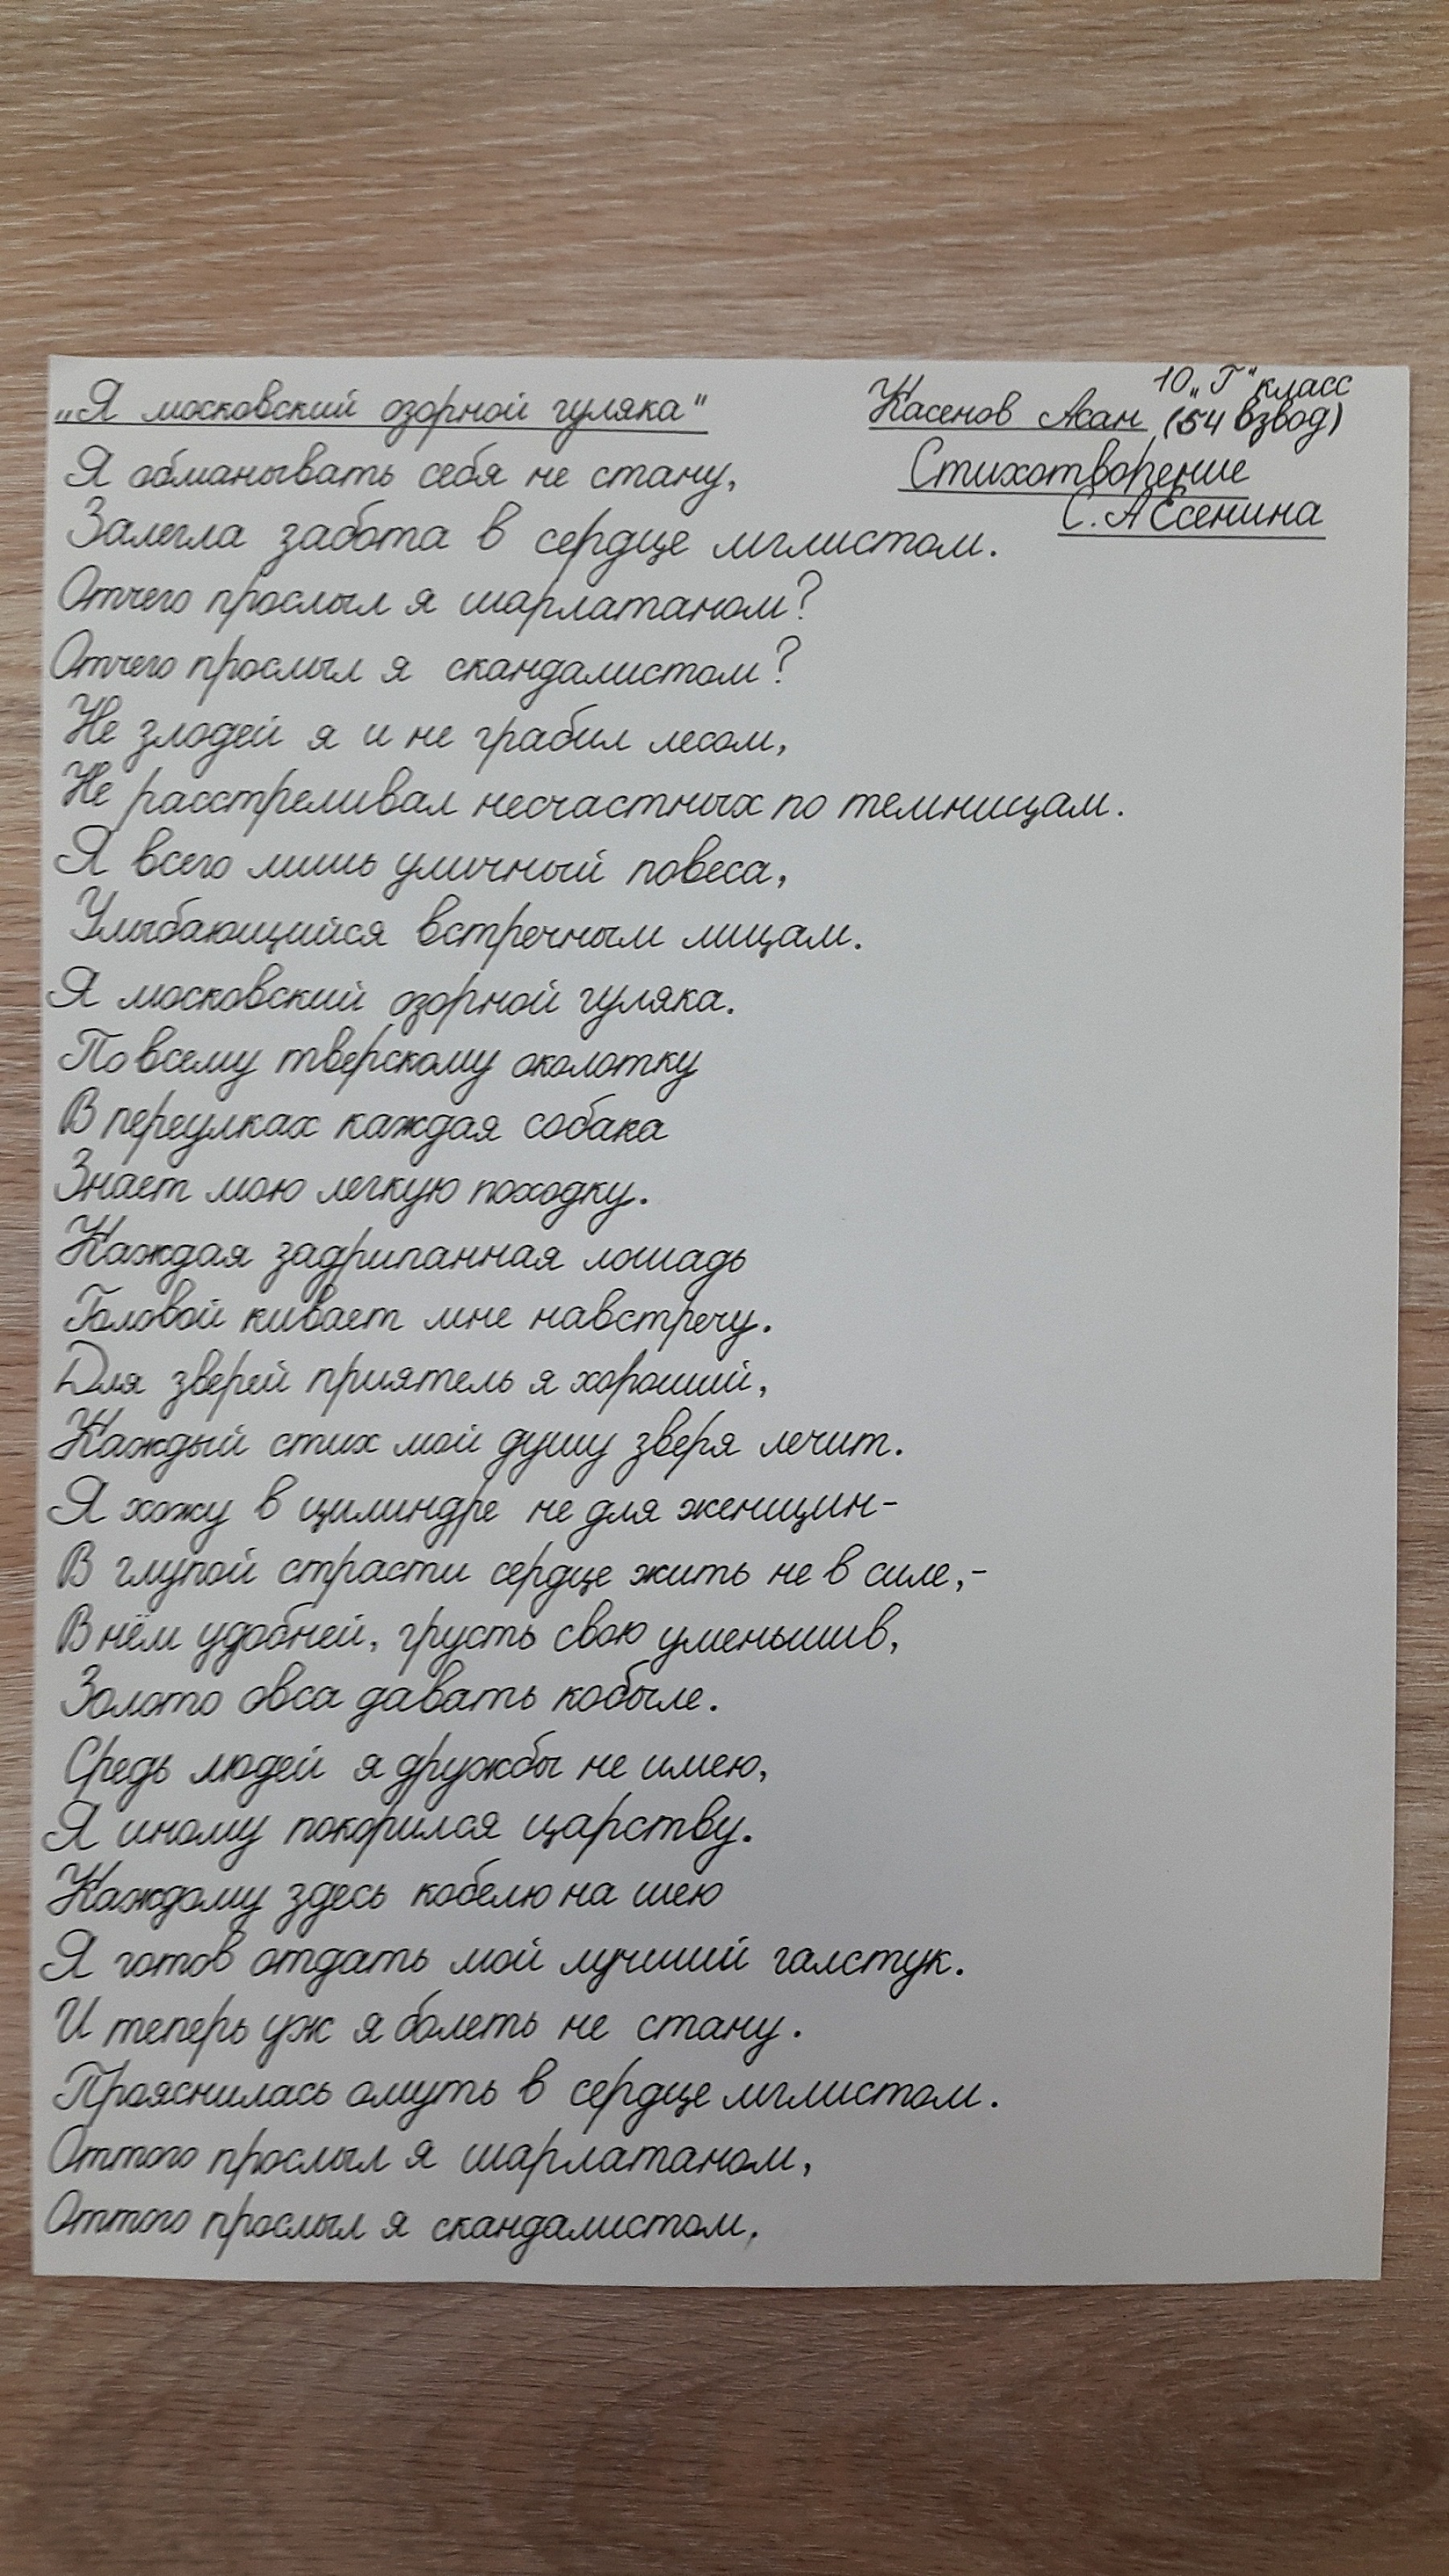 „Я московский озорной гуляка"
10 „Г" класс
Касенов Асан (54 взвод)
Стихотворение
С. А Есенина
Я обманывать себя не стану,
Залегла забота в сердце мглистом.
Отчего прослыл я шарлатаном?
Отчего прослыл я скандалистом?
Не злодей я и не грабил лесом,
Не расстреливал несчастных по темницам.
Я всего лишь уличный повеса,
Улыбающийся встречным лицам.
Я московский озорной гуляка.
По всему тверскому околотку
В переулках каждая собака
Знает мою легкую походку.
Каждая задрипанная лошадь
Головой кивает мне навстречу.
Для зверей приятель я хороший,
Каждый стих мой душу зверя лечит.
Я хожу в цилиндре не для женщин-
В глупой страсти сердце жить не в силе,-
В нём удобней, грусть свою уменьшив,
Золото овса давать кобыле.
Средь людей я дружбы не имею,
Я иному покорился царству.
Каждому здесь кобелю на шею
Я готов отдать мой лучший галстук.
И теперь уж я болеть не стану.
Прояснилась омуть в сердце мглистом.
Оттого прослыл я шарлатаном,
Оттого прослыл я скандалистом.